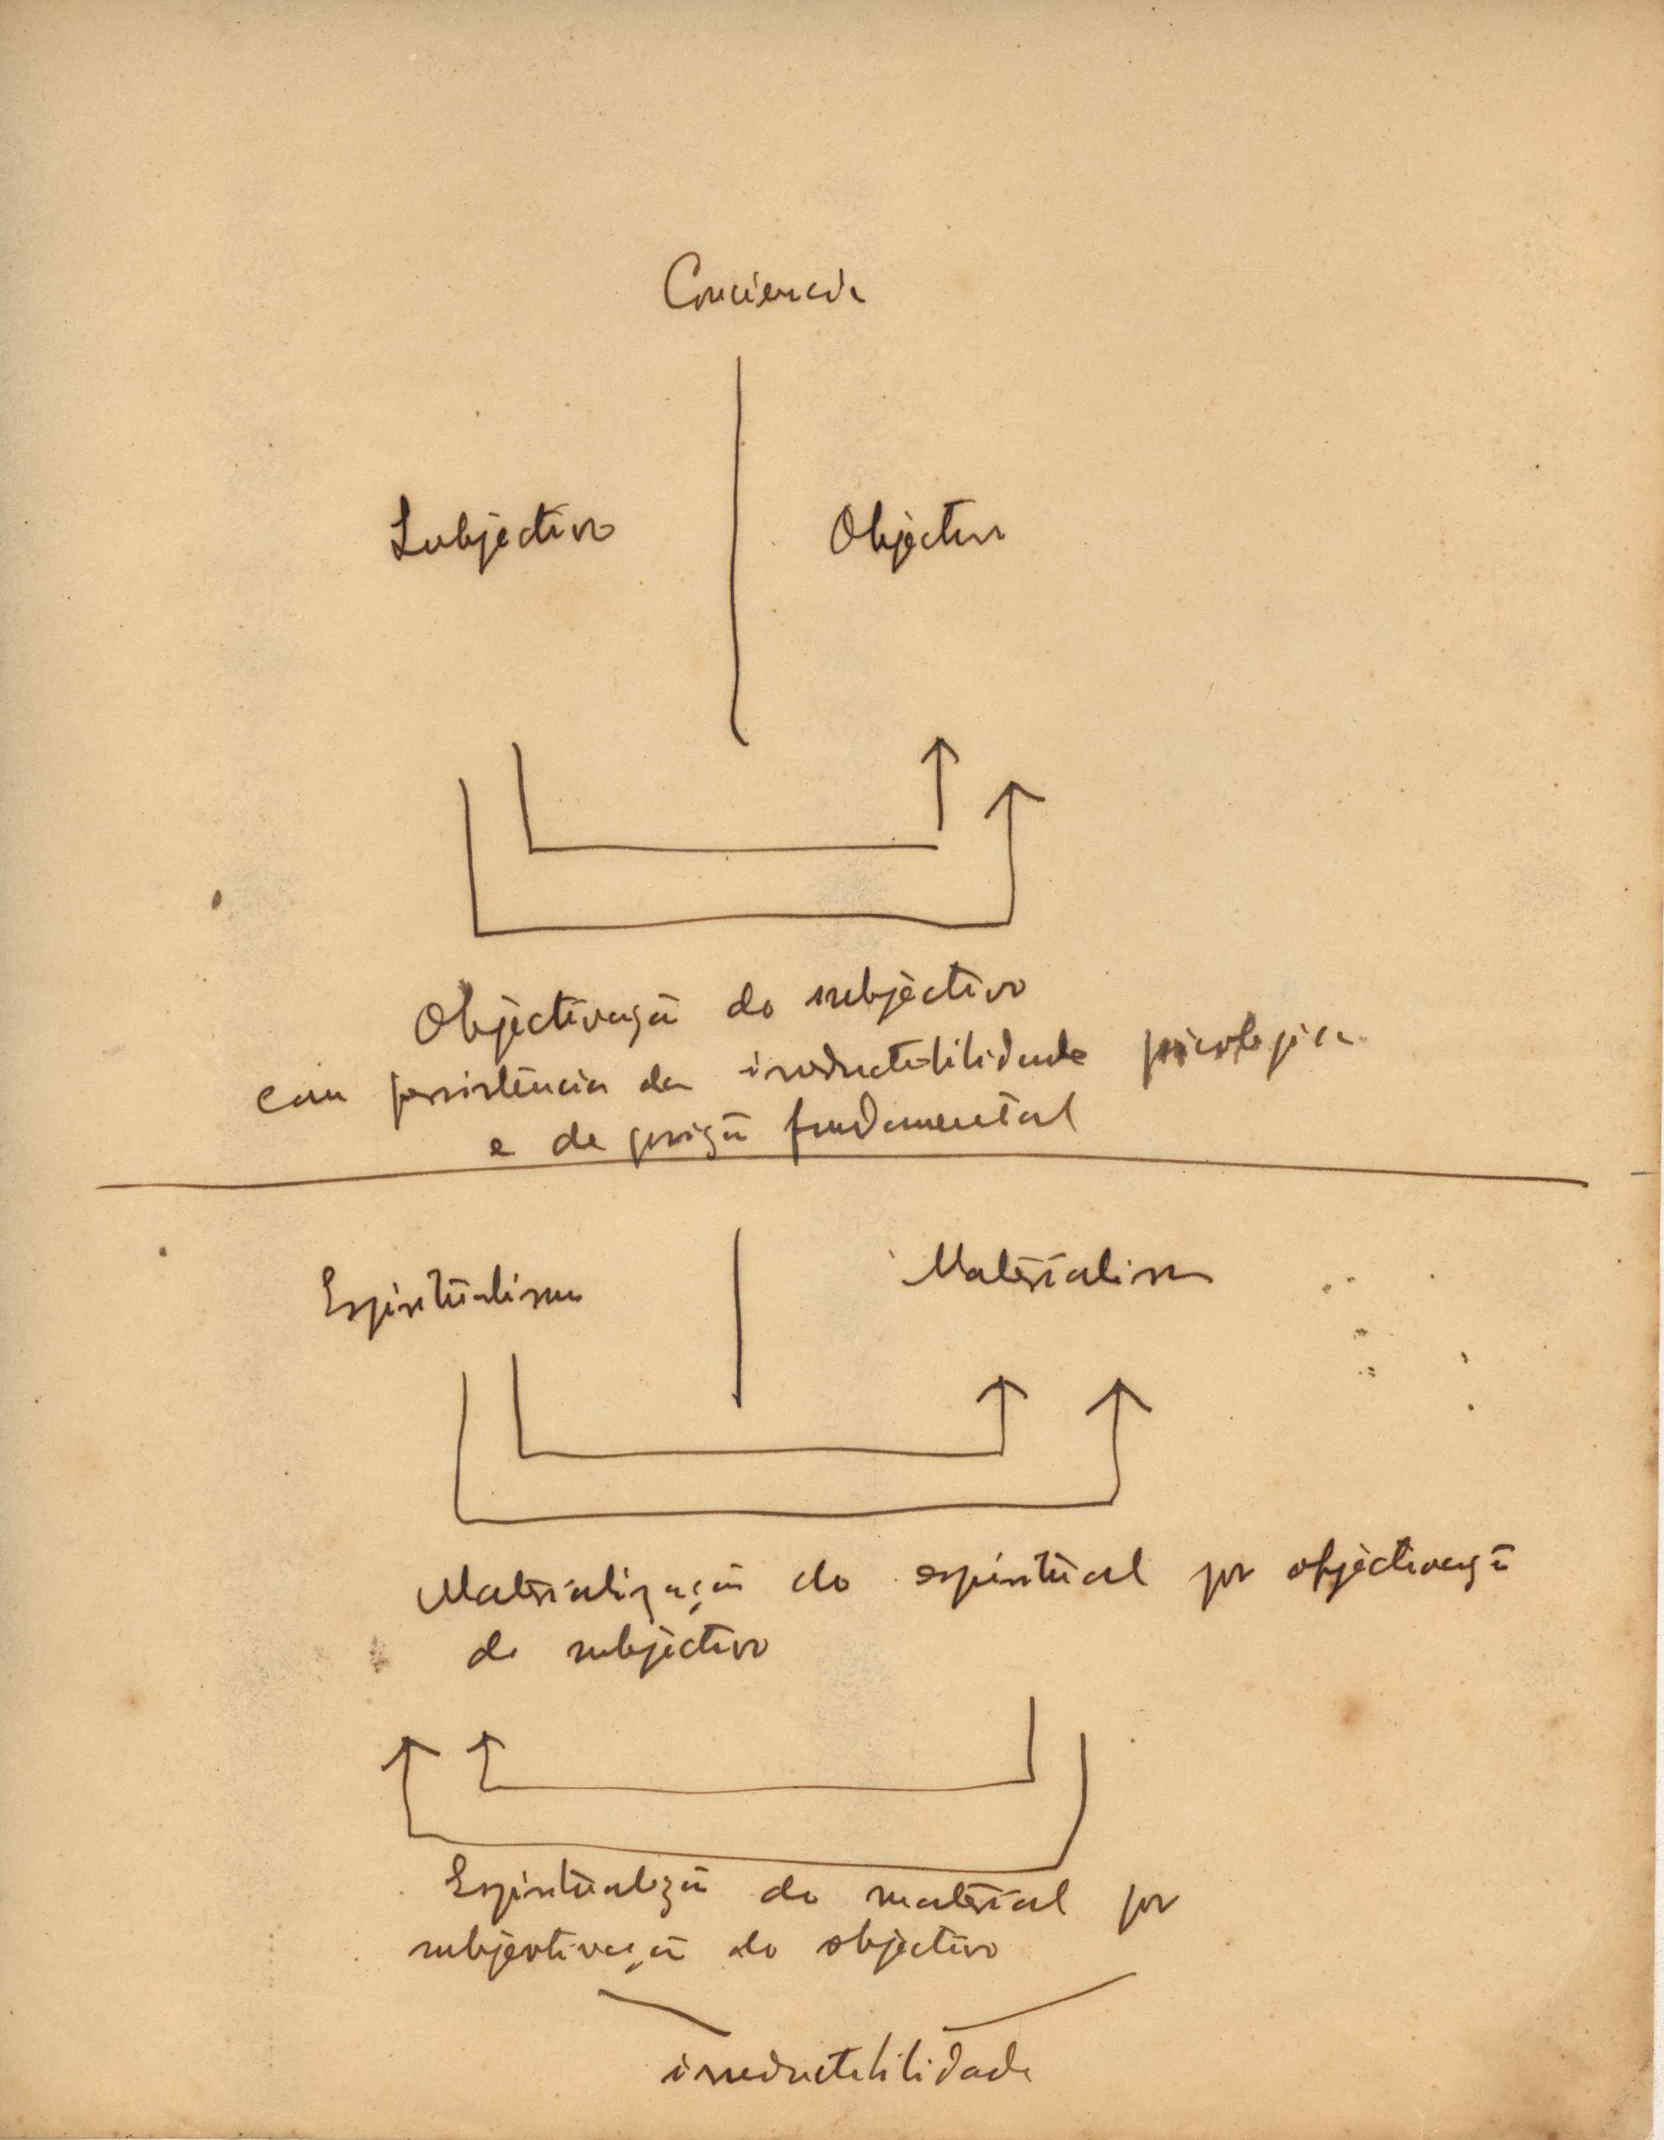 Conciencia
Subjectivo Objectivo
Objectivação do subjectivo
com persistência da irreductibilidade psicologica
e de posição fundamental
Espiritualismo Materialismo
Materialização do espiritual por objectivação
do subjectivo
Espiritualização do material por
subjectivação do objectivo
irreductibilidade